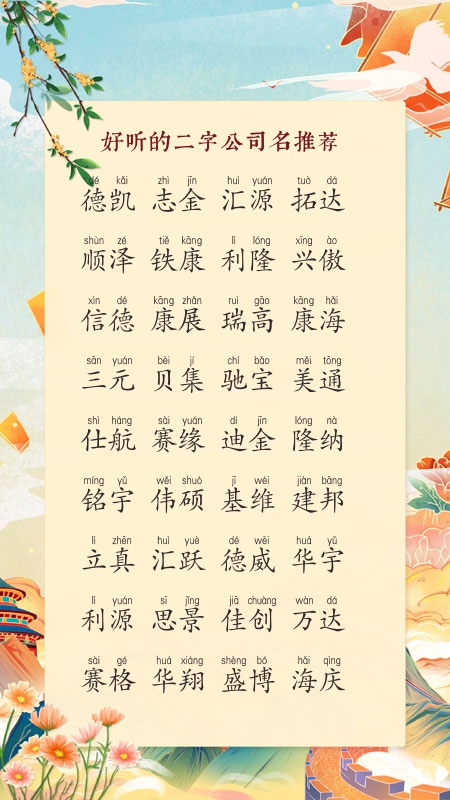 好听的二字公司名推荐
dé kǎi zhì jīn huì yuán tuò dá
德凯 志金 汇源 拓达
shùn zé tiě kāng lì lóng xīng ào
顺泽 铁康 利隆 兴傲
xìn dé kāng zhǎn ruì gāo kāng hǎi
信德 康展 瑞高 康海
sān yuán bèi jí chí bǎo měi tōng
三元 贝集 驰宝 美通
shì háng sài yuán dí jīn lóng nà
仕航 赛缘 迪金 隆纳
míng yǔ wěi shuò jī wéi jiàn bāng
铭宇 伟硕 基维 建邦
lì zhēn huì yuè dé wēi huá yǔ
立真 汇跃 德威 华宇
lì yuán sī jǐng jiā chuàng wàn dá
利源 思景 佳创 万达
sài gé huá xiáng shèng bó hǎi qìng
赛格 华翔 盛博 海庆